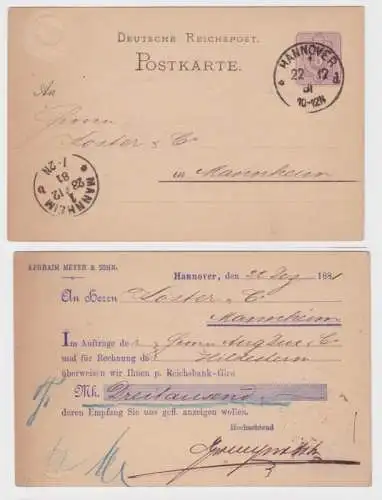 DEUTSCHE REICHSPOST.
POSTKARTE.
HANNOVER
22 12
81
10-12N
An
Herrn
Koster & C°
in Mannheim
MANNHEIM
1
23 12
81
1-2N
EPHRAIM MEYER & SOHN.
Hannover, den 22 Dez 1881
An Herren Koster & C°
Mannheim
Im Auftrage de r Herrn Aug
und für Rechnung do Hildesheim
überweisen wir Ihnen p. Reichsbank-Giro
Mk. Dreitausend
deren Empfang Sie uns gefl. anzeigen wollen.
Hochachtend